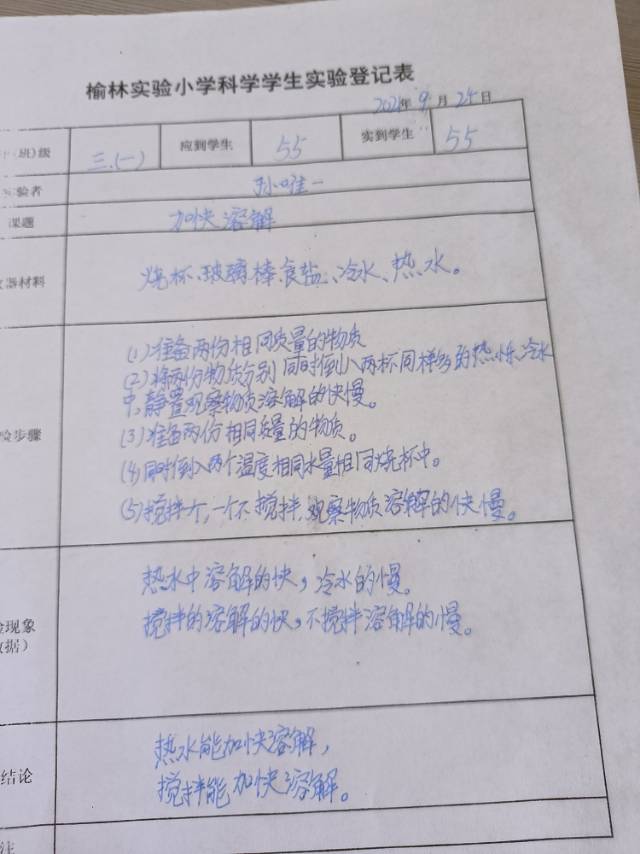 榆林实验小学科学学生实验登记表
2021年9月25日
(班)级 三.(一) 应到学生 55 实到学生 55
验者 孙唯一
课题 加快溶解
器材料 烧杯、玻璃棒、食盐、冷水、热水。
(1)准备两份相同质量的物质
(2)将两份物质分别同时倒入两杯同样多的热水、冷水
中,静置观察物质溶解的快慢。
步骤 (3)准备两份相同质量的物质。
(4)同时倒入两个温度相同水量相同烧杯中。
(5)搅拌一个,一个不搅拌,观察物质溶解的快慢。
热水中溶解的快,冷水的慢。
现象 搅拌的溶解的快,不搅拌溶解的慢。
据)
热水能加快溶解,
结论 搅拌能加快溶解。
注